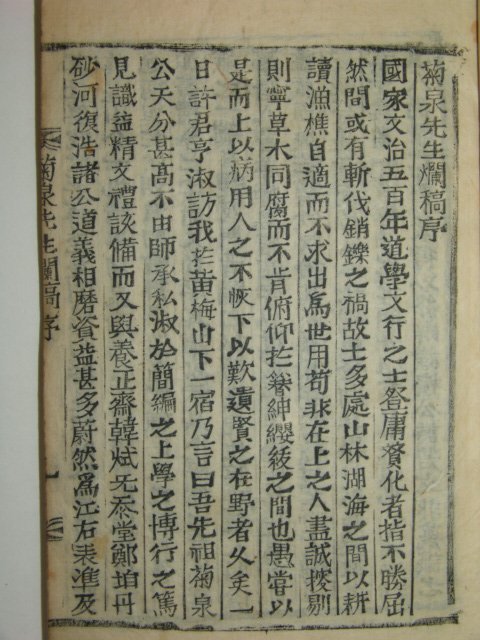 菊泉先生爛稿序
國家文治五百年道學文行之士登庸贊化者指不勝屈
然間或有斬伐銷鑠之禍故士多處山林湖海之間以耕
讀漁樵自適而不求出爲世用苟非在上之人盡誠搜剔
則寧草木同腐而不肯俯仰於簪紳纓緌之間也愚嘗以
是而上以病用人之不恢下以歎遺賢之在野者久矣一
日許君亨淑訪我於黃梅山下一宿乃言曰吾先祖菊泉
公天分甚高不由師承私淑於簡編之上學之博行之篤
見識益精文禮該備而又與養正齋韓斌无忝堂鄭垍丹
砂河復浩諸公道義相磨資益甚多蔚然爲江右表準及
菊泉先生爛稿序
一